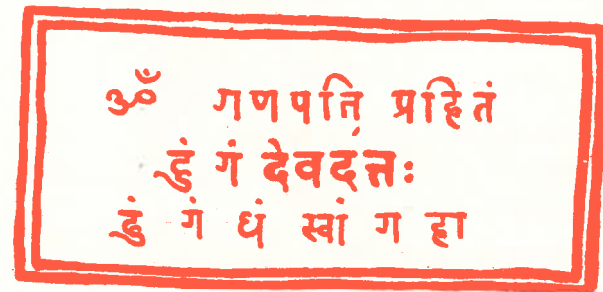 ॐ गणपति प्रहितं
हुं गं देवदत्तः
हुं गं धं स्वां ग हा